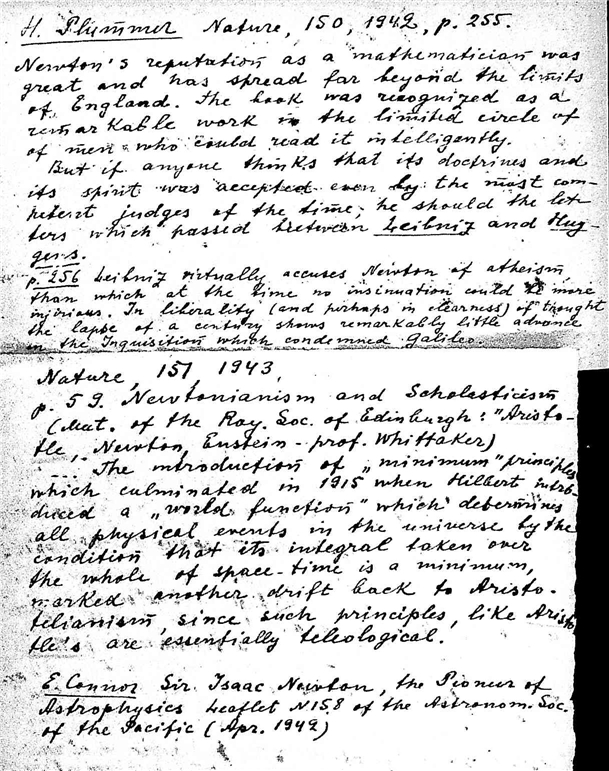 H. Plummer Nature, 150, 1942, p. 255.
Newton's reputation as a mathematician was
great and has spread far beyond the limits
of England. The book was recognized as a
remarkable work in the limited circle of
of men who could read it intelligently.
But if anyone thinks that its doctrines and
its spirit was accepted even by the most com-
petent judges of the time, he should the let-
ters which passed between Leibniz and Huy-
gens.
p. 256 Leibniz virtually accuses Newton of atheism,
than which at the time no insinuation could be more
injurious. In liberality (and perhaps in clearness) of thought
the lapse of a century shows remarkably little advance
on the Inquisition which condemned Galileo.
Nature, 151, 1943,
p. 59. Newtonianism and Scholasticism
(Mat. of the Roy. Soc. of Edinburgh: "Aristo-
tle, Newton, Einstein - prof. Whittaker)
... The introduction of „minimum" principles
which culminated in 1915 when Hilbert intro-
duced a „world function" which determines
all physical events in the universe by the
condition that its integral taken over
the whole of space-time is a minimum,
marked another drift back to Aristo-
telianism, since such principles, like Aristo
tle's are essentially teleological.
E. Connor Sir Isaac Newton, the Pioneer of
Astrophysics Leaflet N158 of the Astronom. Soc.
of the Pacific (Apr. 1942)